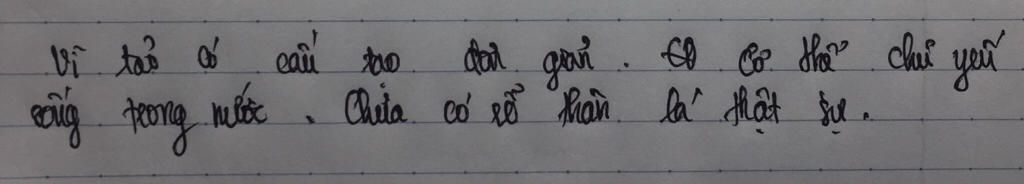 Vì tảo có cấu tạo đơn giản. Cơ thể chủ yếu
sống trong nước. Chưa có rễ thân lá thật sự.